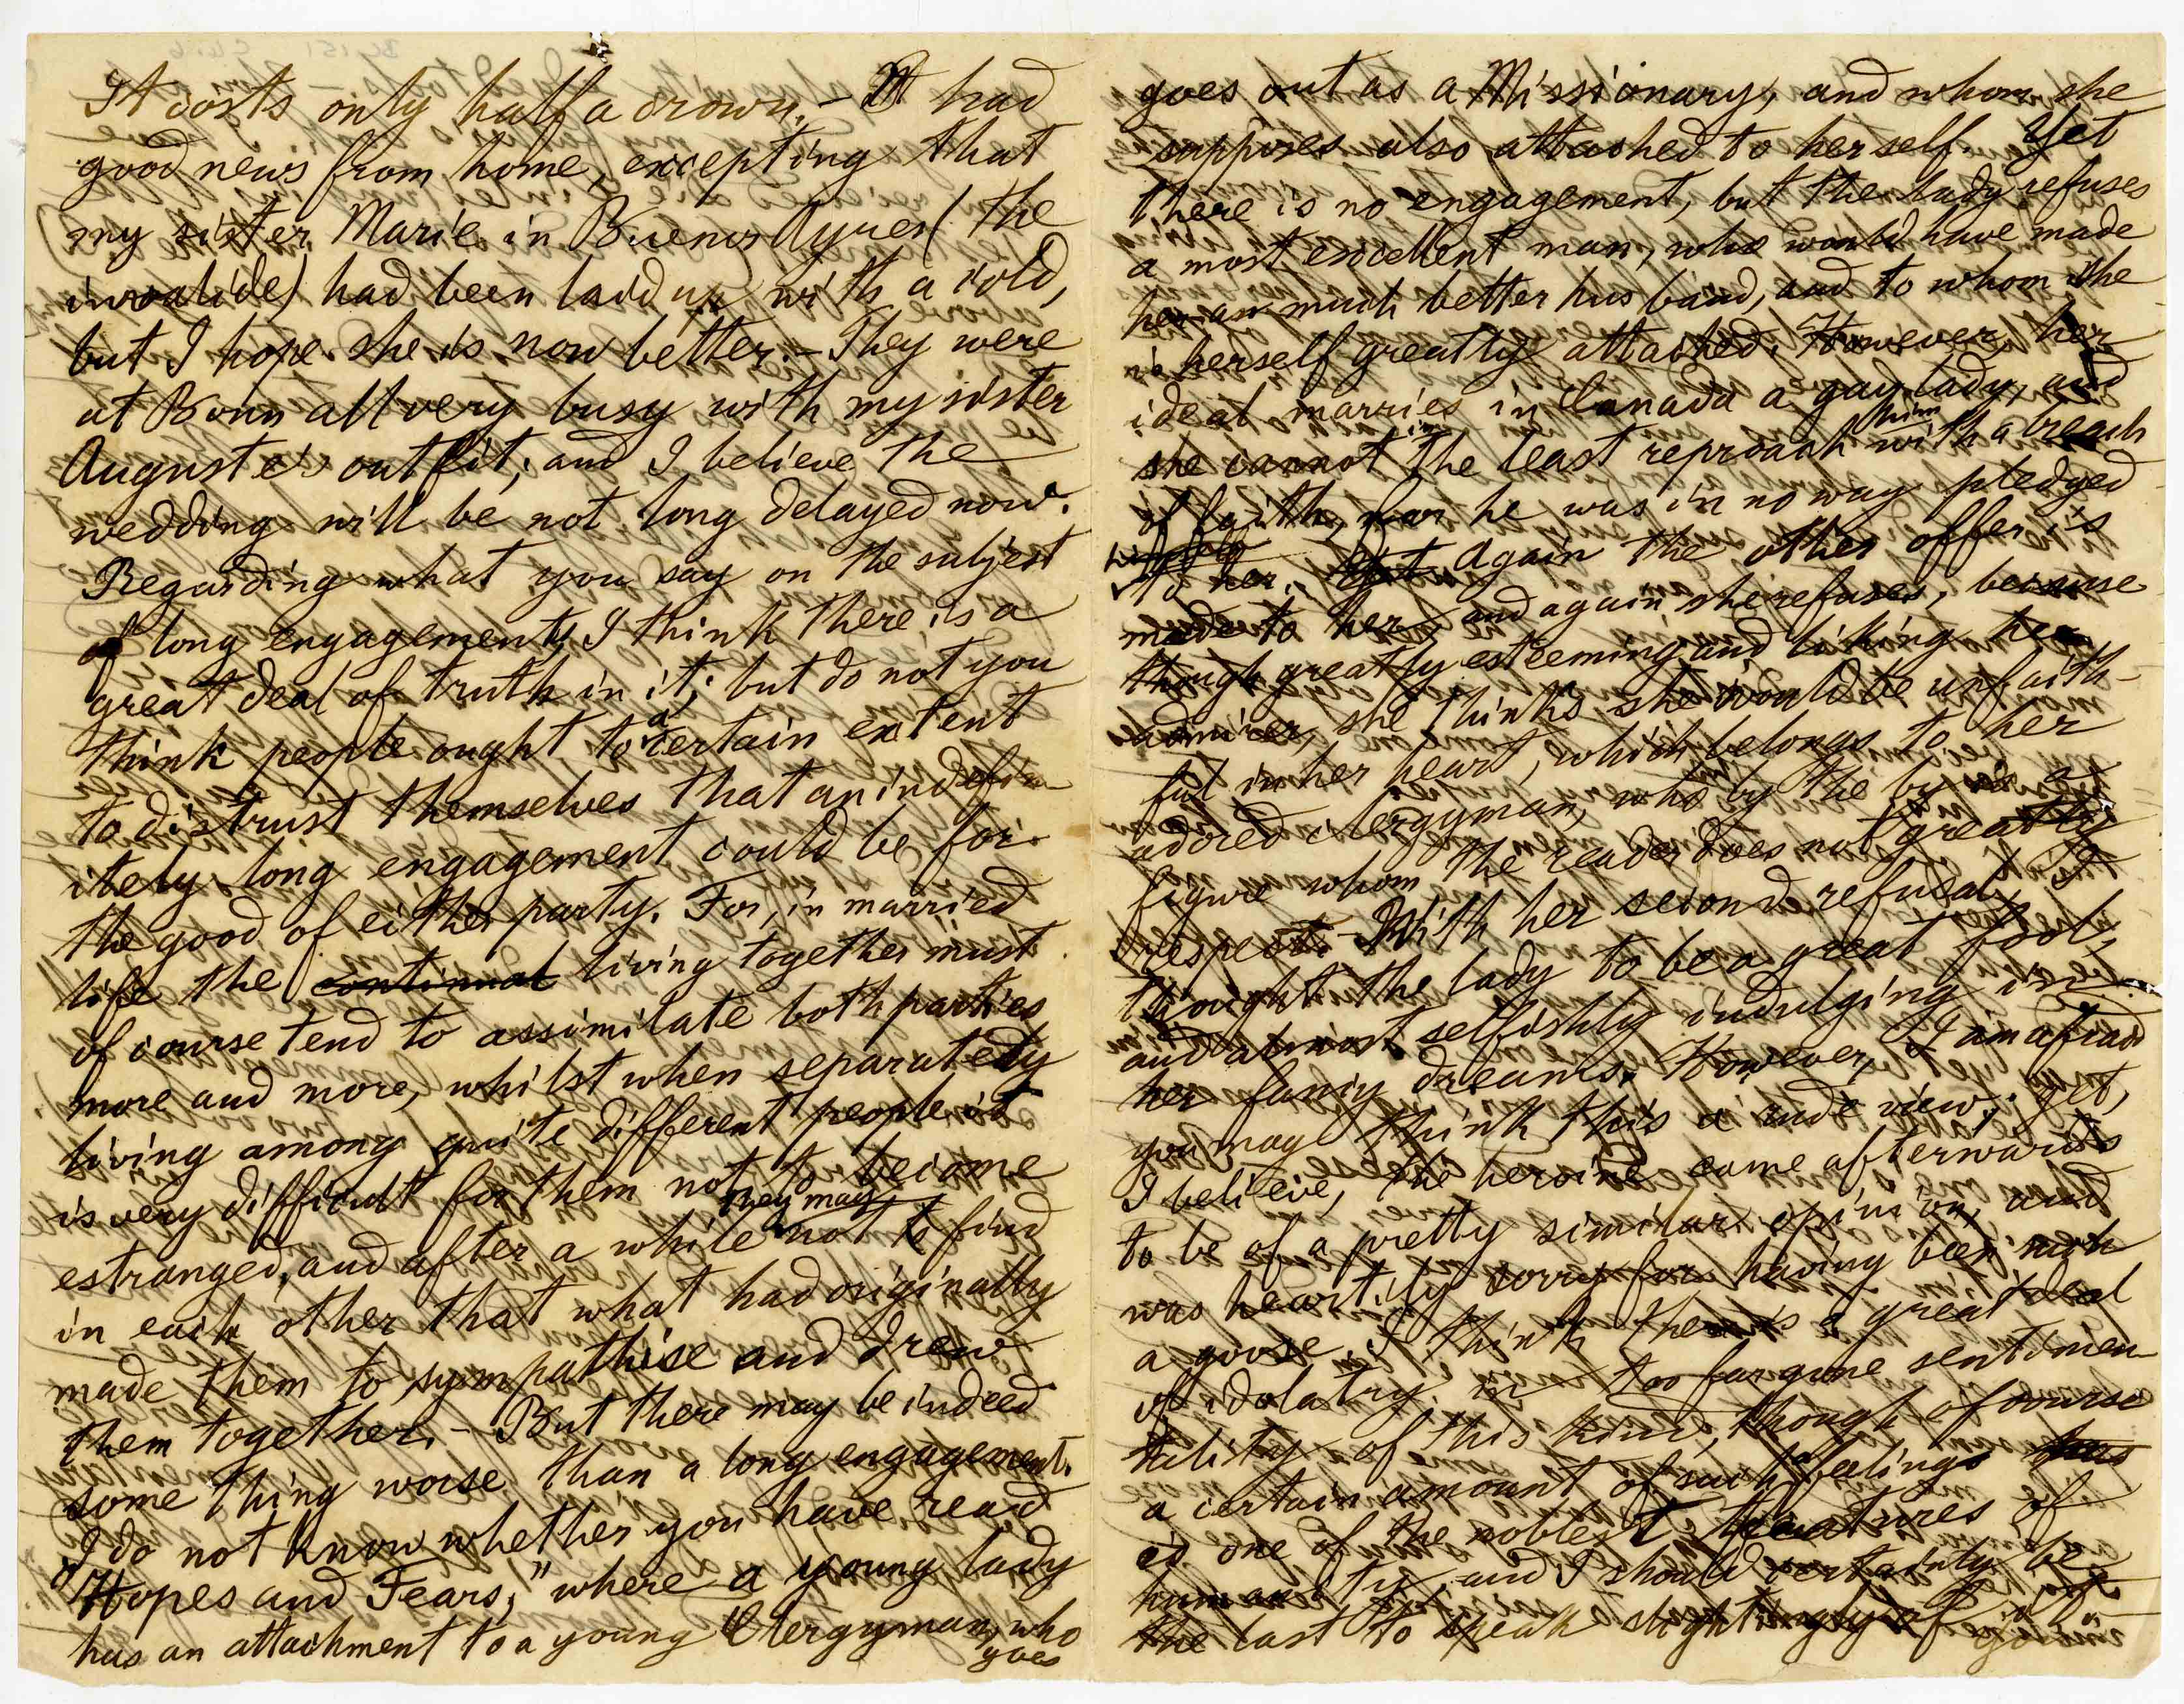 It costs only half a crown. – I had
good news from home, excepting that
my sister Marie in Buenos Ayres (the
invalide) had been laid up with a cold,
but I hope she is now better. – They were
at Bonn all very busy with my sister
Auguste's outfit; and I believe the
wedding will be not long delayed now.
Regarding what you say on the subject
of long engagements, I think there is a
great deal of truth in it; but do not you
think people ought to a certain extent
to distrust themselves that an indefin-
itely long engagement could be for
the good of either party. For, in married
life the continual living together must
of course tend to assimilate both parties
more and more, whilst when separately
living among quite different people it
is very difficult for them not to become
estranged, and after a while they may not to find
in each other that what had originally
made them to sympathise and drew
them together. – But there may be indeed
some thing worse than a long engagement.
I do not know whether you have read
"Hopes and Fears," where a young lady
has an attachment to a young Clergyman, who
goes
goes out as a Missionary, and whom she
supposes also attached to herself. Yet
there is no engagement, but the lady refuses
a most excellent man, who would have made
her a much better husband, and to whom she
is herself greatly attached. However, her
ideal marries in Canada a gay lady, and
she cannot in the least reproach him with a breach
of faith, for he was in no way pledged
to her. Again the other offer is
made to her, and again she refuses, because
though greatly esteeming and liking her
admirer, she thinks she would be unfaith-
ful in her heart, which belongs to her
adored clergyman, who by the by is a
figure whom the reader does not greatly
respect. – With her second refusal, I
thought the lady to be a great fool,
and almost selfishly indulging in
her fancy dreams. However, I am afraid
you may think this a rude view; yet,
I believe, the heroine came afterwards
to be of a pretty similar opinion, and
was heartily sorry for having been such
a goose. I think there is a great deal
of idolatry in too far gone sentimen
tality of this kind, though of course
a certain amount of such feelings
is one of the noblest features of
humanity, and I should certainly be
the last to speak slightingly of it.